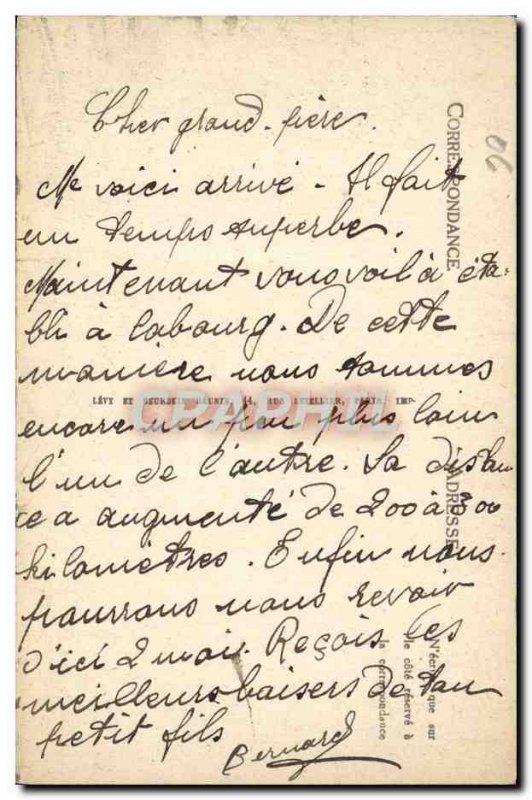 Cher grand-père.
Me voici arrivé - Il fait
un temps superbe.
Maintenant vous voilà éta-
bli à Cabourg. De cette
manière nous sommes
encore un peu plus loin
l'un de l'autre. La distan
ce a augmenté de 200 à 300
kilomètres. Enfin nous
pourrons nous revoir
d'ici 2 mois. Reçois les
meilleurs baisers de ton
petit fils
Bernard
CORRESPONDANCE
ADRESSE
LÉVY ET NEURDEIN RÉUNIS, 44, RUE LETELLIER, PARIS, IMP.
N'écrire que sur
le côté réservé à
la correspondance
CPAPHIL